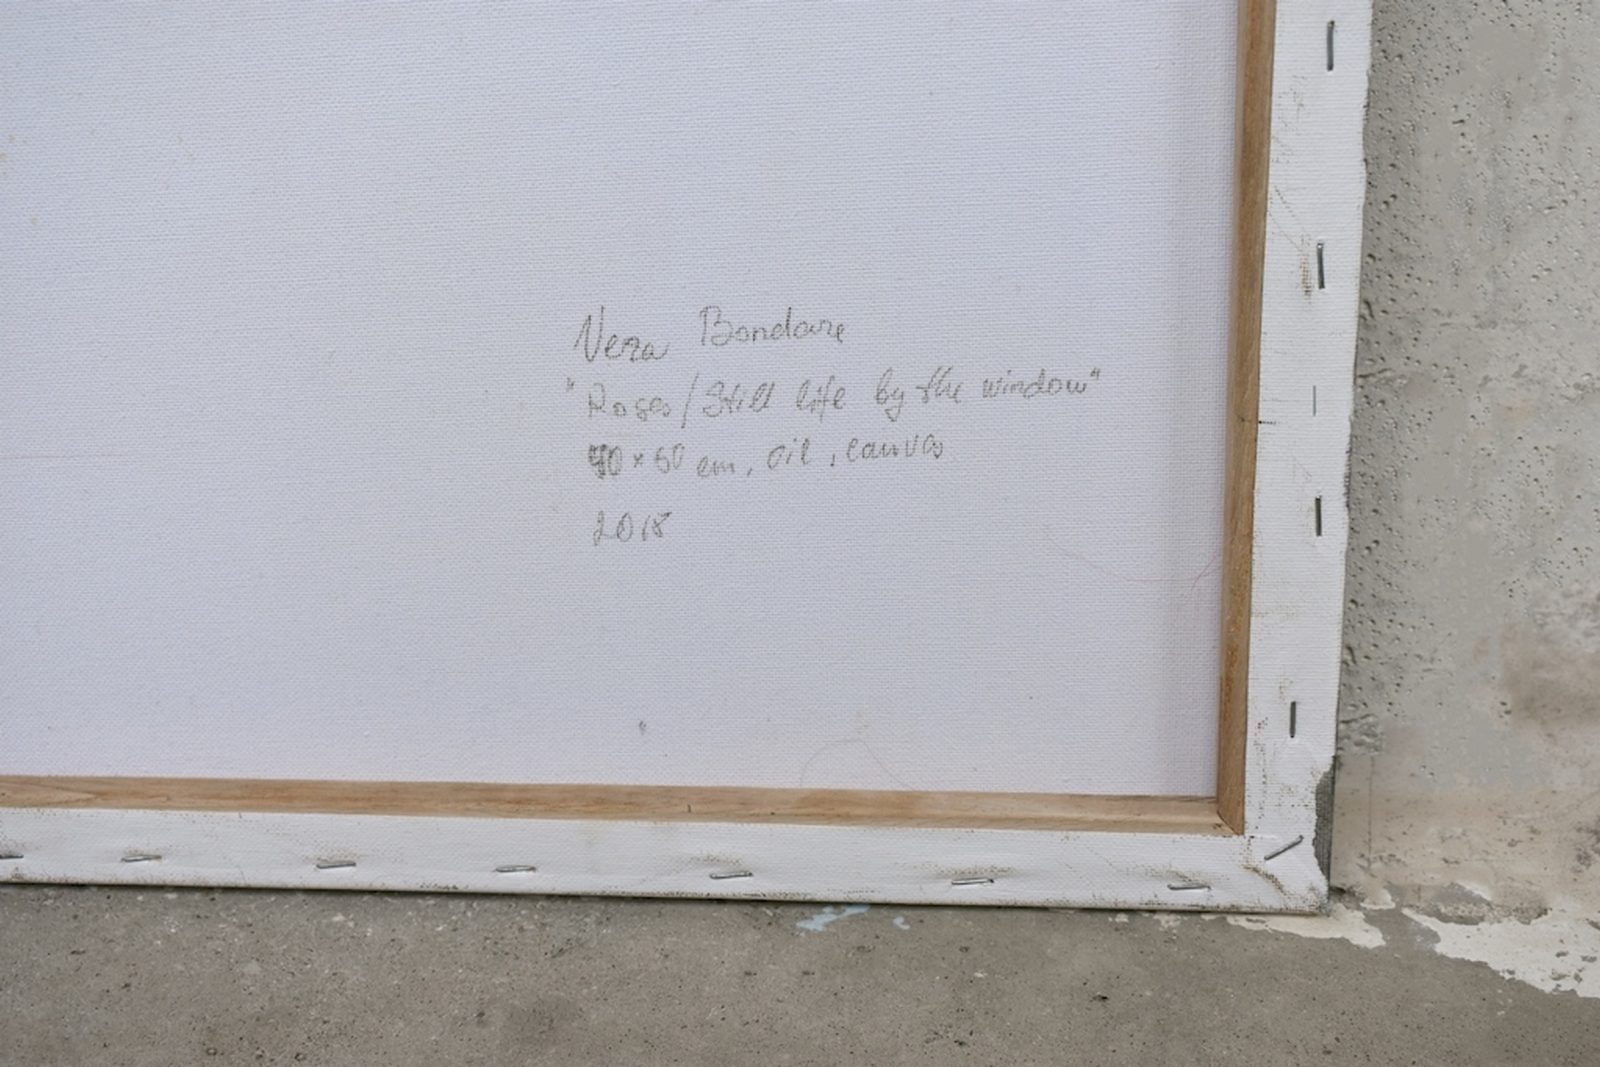 Vera Bondare
"Roses/Still life by the window"
50 cm, oil, canvas
2018